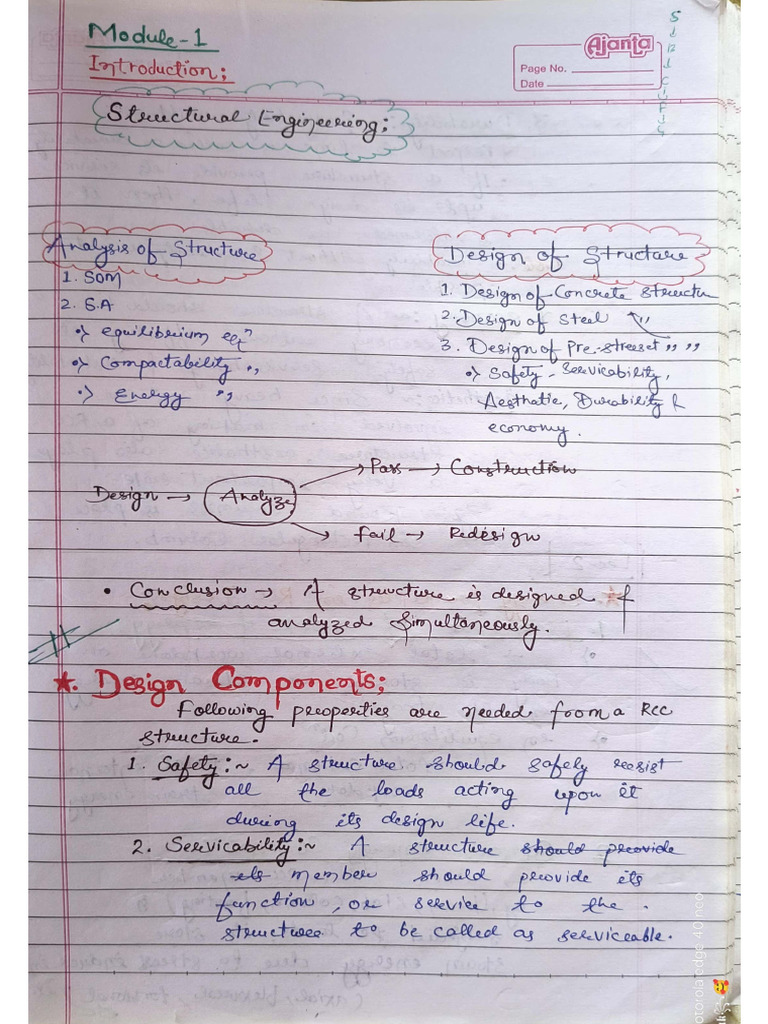 Module-1
Introduction;
Ajanta
Page No.
Date
Structural Engineering;
Analysis of Structure
1. SOM
2. S.A
•> equilibrium eqⁿ
•> Compactability ",
•> Energy ",
Design of Structure
1. Design of Concrete Structur
2. Design of Steel ",
3. Design of Pre-streset ,, ,,
•> Safety - Servicability,
Aesthatic, Durability &
economy.
Design → Analyze
→ Pass → Construction
→ fail → Redesign
• Conclusion → A structure is designed &
analyzed Simultaneously.
*. Design Components;
Following properties are needed from a RCC
structure.
1. Safety:~ A structure should safely resist
all the loads acting upon it
during its design life.
2. Servicability:~ A structure should provide
its member should provide its
function, or service to the.
structure to be called as serviceable.